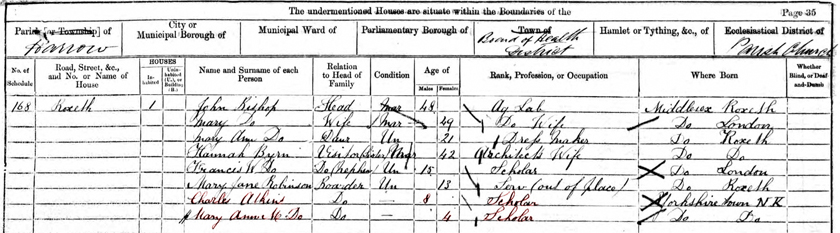 The undermentioned Houses are situate within the Boundaries of the
Page 35
Parish [or Township] of
Harrow
City or Municipal Borough of
Municipal Ward of
Parliamentary Borough of
Town of
Board of Health District
Hamlet or Tything, &c., of
Ecclesiastical District of
Parish Church
No. of Schedule
Road, Street, &c., and No. or Name of House
HOUSES
Inhabited
Uninhabited (U.), or Building (B.)
Name and Surname of each Person
Relation to Head of Family
Condition
Age of
Males
Females
Rank, Profession, or Occupation
Where Born
Whether Blind, or Deaf-and-Dumb
168 Roxeth 1 John Bishop Head Mar 48 Ag Lab Middlesex Roxeth
Mary Do Wife Mar 49 Do Wife Do London
Mary Ann Do Daur Un 21 Dress Maker Do Roxeth
Hannah Byrn Visitor (Sister) Mar 42 Architects Wife Do Do
Francis W Do Do (Nephew) Un 15 Scholar Do London
Mary Jane Robinson Boarder Un 13 Serv (out of place) Do Roxeth
Charles Atkins Do — 8 Scholar Yorkshire Town N K
Mary Ann M Do Do — 4 Scholar Do Do